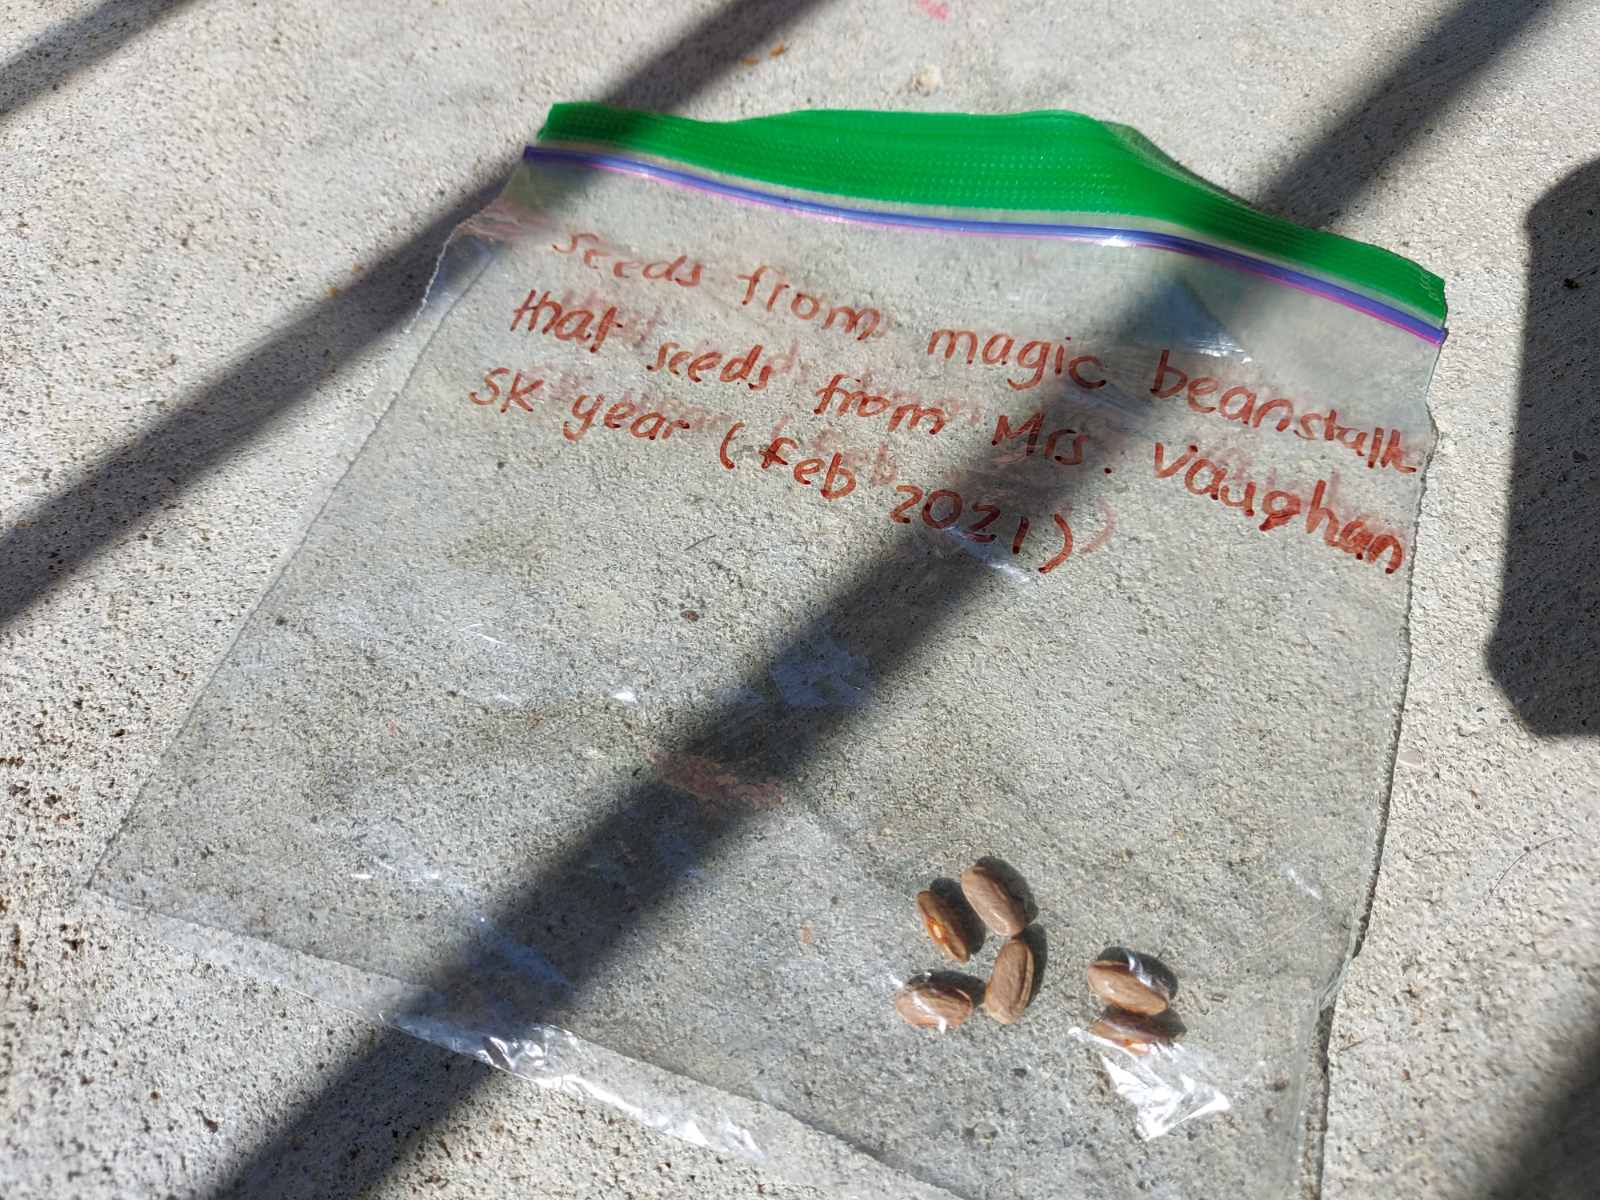 seeds from magic beanstalk
that seeds from Mrs. Vaughan
SK year (feb 2021)